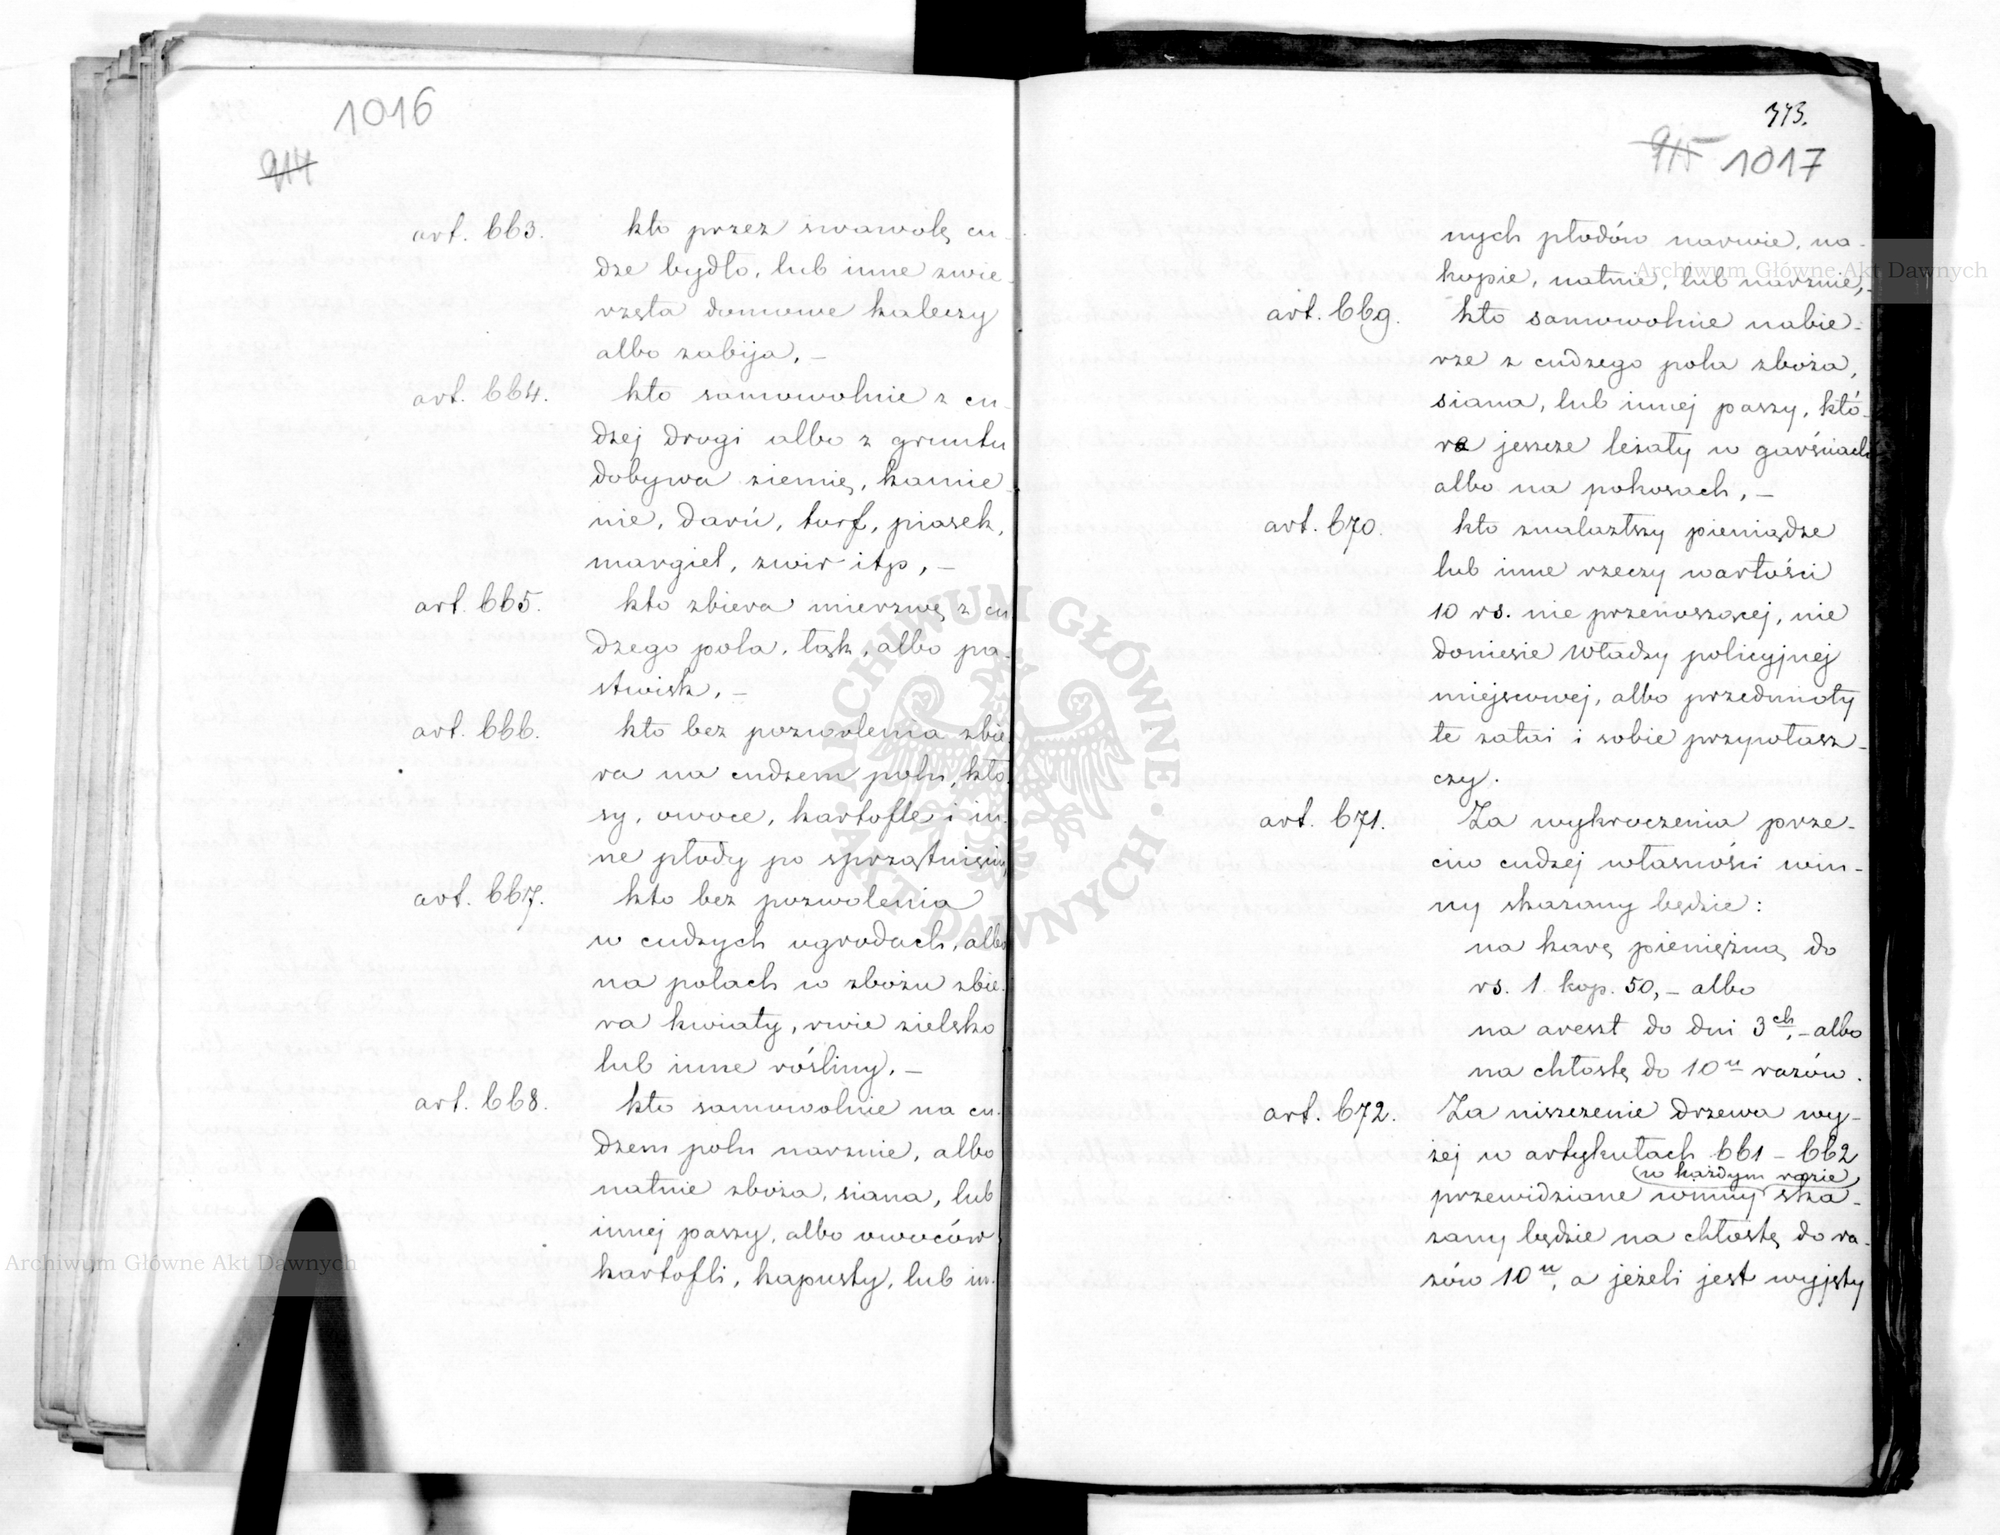 1016
914
art. 663. kto przez swawolę cu-
dze bydło, lub inne zwie-
rzęta domowe kaleczy
albo zabija, –
art. 664. kto samowolnie z cu-
dzej drogi albo z gruntu
dobywa ziemię, kamie-
nie, darń, turf, piasek,
margiel, zwir itp, –
art. 665. kto zbiera mierzwę z cu
dzego pola, łąk, albo pa-
stwisk, –
art. 666. kto bez pozwolenia zbie
ra na cudzem polu, kło
sy, owoce, kartofle i in-
ne płody po sprzątnięciu,
art. 667. kto bez pozwolenia
w cudzych ogrodach, albo
na polach w zbożu zbie-
ra kwiaty, rwie zielsko
lub inne rośliny, –
art. 668. kto samowolnie na cu-
dzem polu narznie, albo
natnie zboża, siana, lub
innej paszy, albo owoców
kartofli, kapusty, lub in-
373.
915 1017
nych płodów narwie, na-
kopie, natnie, lub narznie, –
art. 669. kto samowolnie nabie-
rze z cudzego pola zboża,
siana, lub innej paszy, któ-
re jeszcze leżały w garściach
albo na pokosach, –
art. 670. kto znalazłszy pieniądze
lub inne rzeczy wartości
10 rs. nie przenoszącej, nie
doniesie Władzy policyjnej
miejscowej, albo przedmioty
te zatai i sobie przywłasz-
czy.
art. 671. Za wykroczenia prze-
ciw cudzej własności win-
ny skazany będzie:
na karę pieniężną do
rs. 1. kop. 50, – albo
na areszt do dni 3ch, – albo
na chłostę do 10u razów.
art. 672. Za niszczenie drzewa wy-
żej w artykułach 661 – 662
(w każdym razie)
przewidziane winny ska-
zany będzie na chłostę do ra-
zów 10u, a jeżeli jest wyjęty
Archiwum Główne Akt Dawnych
Archiwum Główne Akt Dawnych
ARCHIWUM GŁÓWNE AKT DAWNYCH